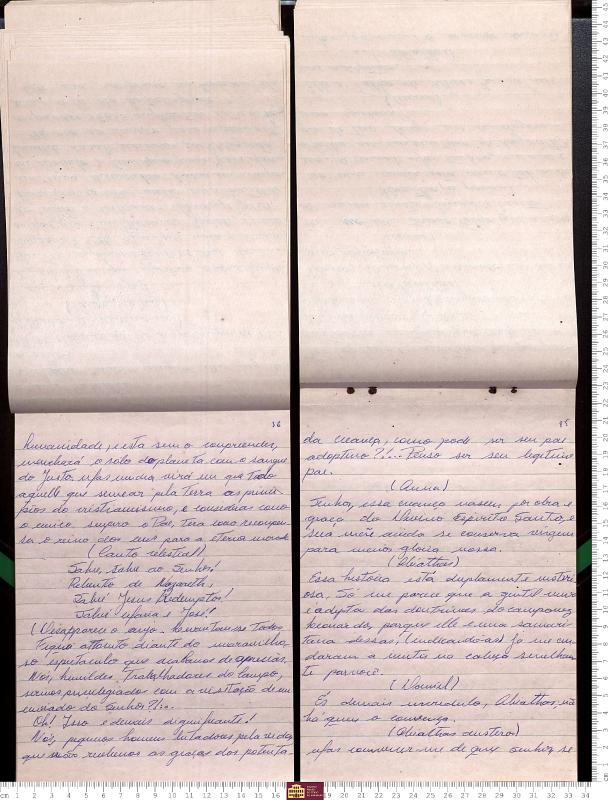 36
humanidade, e esta sem o compreender,
manchará o solo do planeta com o sangue
do Justo. Mas um dia virá em que todo
aquelle que semear pela terra os princi-
pios do cristianismo, e considerar como
o unico supero o Pae, terá como recompen-
sa o reino dos ceus para a eterna
(Canto celestial)
Salve, salve ao Senhor!
de Nazareth,
Salve Jesus Redemptor!
Salve Maria e José!
(Desapparece o anjo. Levantam-se todos
Fiquei attonito diante do maravilho-
so espetaculo que acabamos de
Nós, humildes trabalhadores do campo,
sermos privilegiados com a visitação de um
enviado do Senhor?!...
Oh! Isso é demais dignificante!
Nós, pequenos homens lutadores pela vida,
que recebemos as graças dos potenta-
35
da creança, como pode ser seu pae
adoptivo?!... Penso ser seu legitimo
pae.
(Anna)
Senhor, essa creança nasceu por obra e
graça do Divino Espirito Santo, e
sua mãe ainda se conserva virgem
para maior gloria nossa.
Essa história está duplamente misteri-
osa. Só me parece que a gentil
é adepta das doutrinas do camponez
porque elle e uma samari-
tana dessas, (indicando-as) ja me en-
daram a metter na cabeça semelhan-
te
(Daniel)
És demais incredulo, não
ha quem o convença.
austero)
Mas convencer-me de que senhor, se